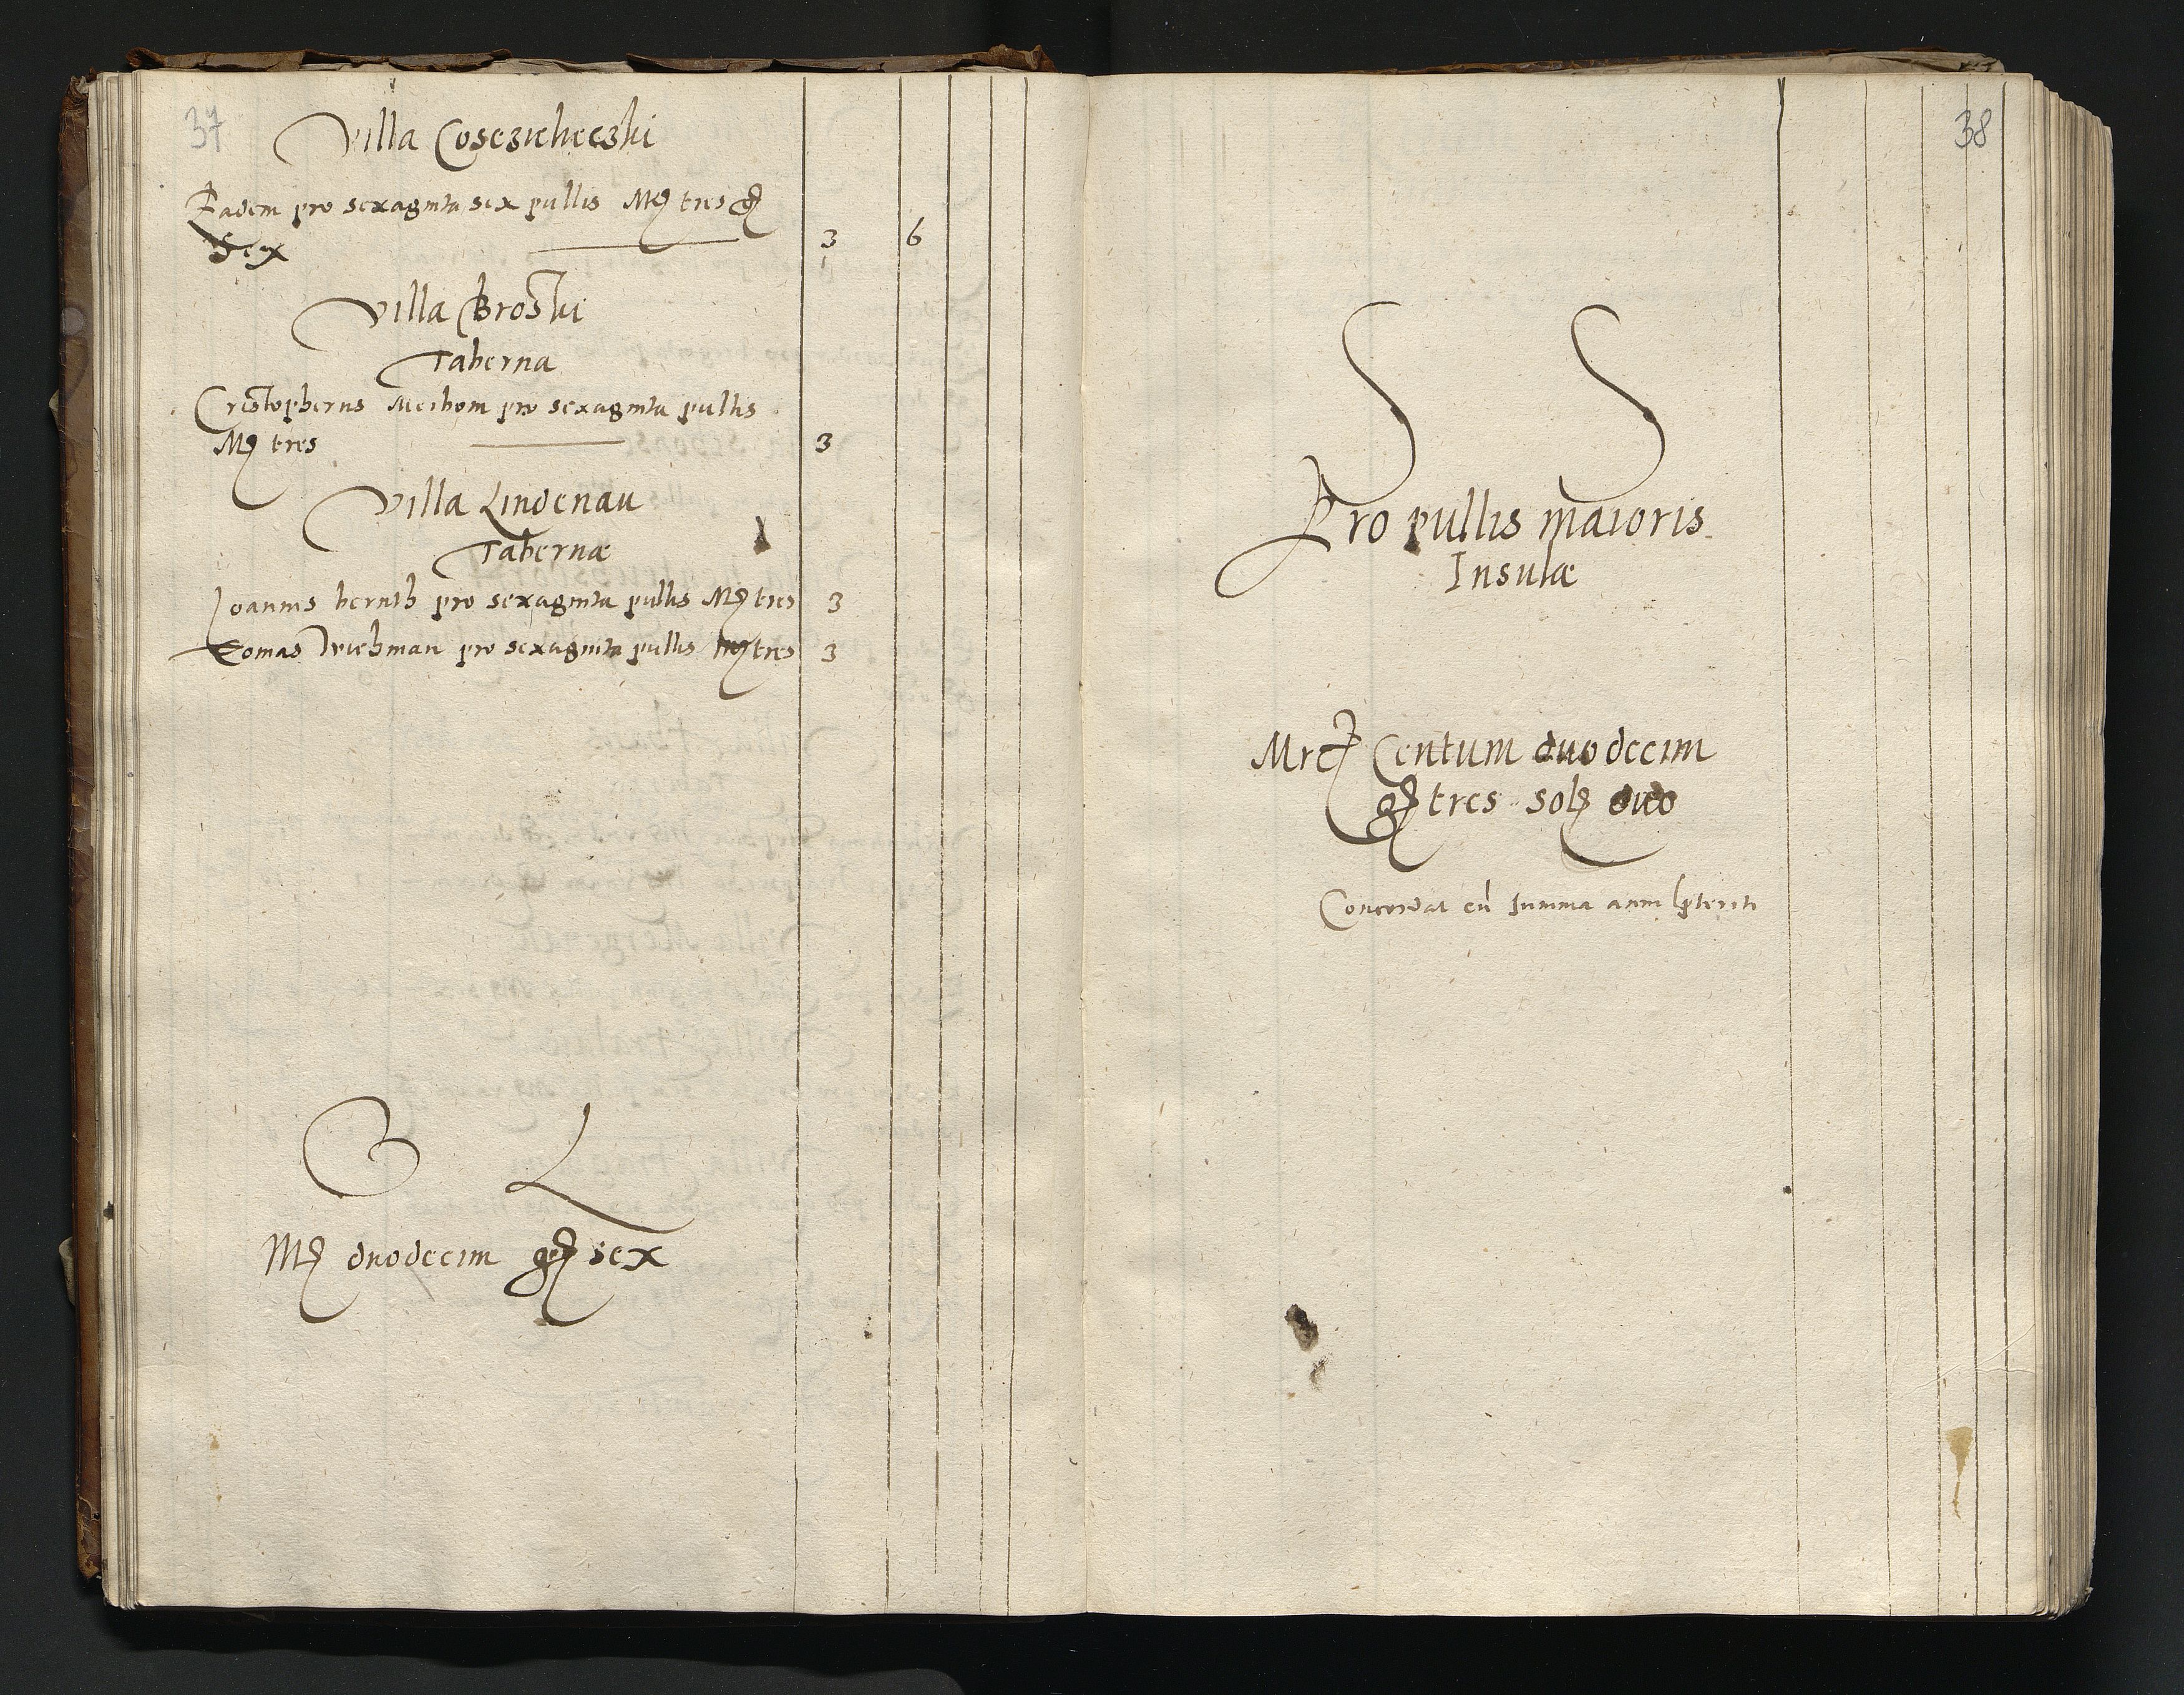 37
Villa Cosczicheczki
Eadem pro sexaginta sex pullis Mr tres gr
Sex 3 6
Villa Broski
Taberna
Cristopherus Meibom pro sexaginta pullis
Mr tres 3
Villa Lindenau
Tabernæ
Joannis bernth pro sexaginta pullis Mr tres 3
Tomas Wichman pro sexaginta pullis Mr tres 3
Mr duodecim gr sex
38
S S
Pro pullis maioris
Insulæ
Mrc Centum duodecim
gr tres sol duo
Concordat cu summa anni pteriti